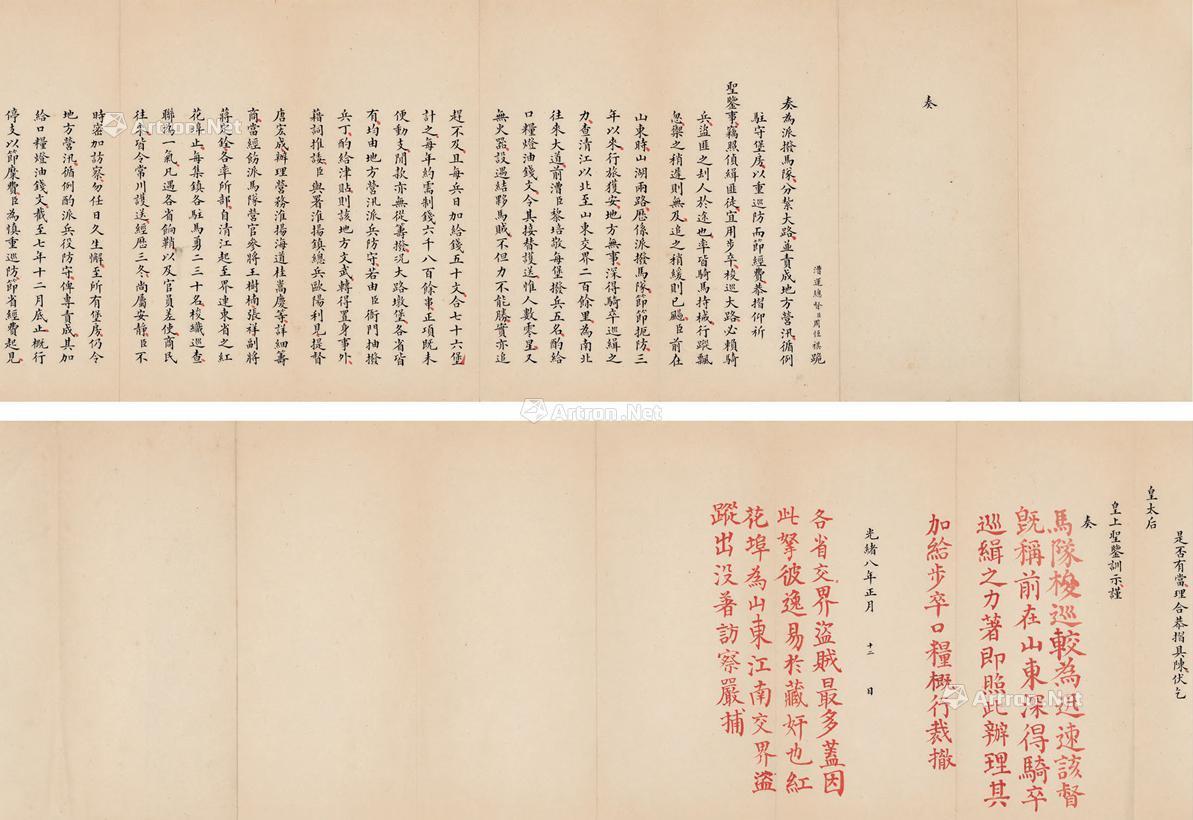 奏
漕運總督臣周恒祺跪
奏為派撥馬隊分紮大路並責成地方營汛循例
駐守堡房以重巡防而節經費恭摺仰祈
聖鑒事竊照偵緝匪徒宜用步卒梭巡大路必賴騎
兵盜匪之刦人於途也率皆騎馬持械行蹤飄
忽禦之稍遲則無及追之稍緩則已颺臣前在
山東時山湖兩路歷係派撥馬隊節節扼防三
年以來行旅獲安地方無事深得騎卒巡緝之
力查清江以北至山東交界二百餘里為南北
往來大道前漕臣黎培敬每堡撥兵五名酌給
口糧燈油錢文令其接替護送惟人數零星又
無火器設遇結夥馬賊不但力不能勝實亦追
趕不及且每兵日加給錢五十文合七十六堡
計之每年約需制錢六千八百餘串正項既未
便動支閒款亦無從籌撥況大路墩堡各省皆
有均由地方營汛派兵防守若由臣衙門抽撥
兵丁酌給津貼則該地方文武轉得置身事外
藉詞推諉臣與署淮揚鎮總兵歐陽利見提督
唐宏成辦理營務淮揚海道桂嵩慶等詳細籌
商當經飭派馬隊營官參將王樹楠張祥副將
蔣定銓各率所部自清江起至界連東省之紅
花埠止每集鎮各駐馬勇二三十名梭織巡查
聯為一氣凡遇各省餉鞘以及官員差使商民
往來皆令常川護送經歷三冬尚屬安靜臣不
時密加訪察勿任日久生懈至所有堡房仍令
地方營汛循例酌派兵役防守俾專責成其加
給口糧燈油錢文截至七年十二月底止概行
停支以節糜費臣為慎重巡防節省經費起見
是否有當理合恭摺具陳伏乞
皇太后
皇上聖鑒訓示謹
奏
馬隊梭巡較為迅速該督
既稱前在山東深得騎卒
巡緝之力著即照此辦理其
加給步卒口糧概行裁撤
光緒八年正月 十二 日
各省交界盜賊最多蓋因
此拏彼逸易於藏奸也紅
花埠為山東江南交界盜
蹤出沒著訪察嚴捕
Artron.Net
Artron.Net
Artron.Net
Artron.Net